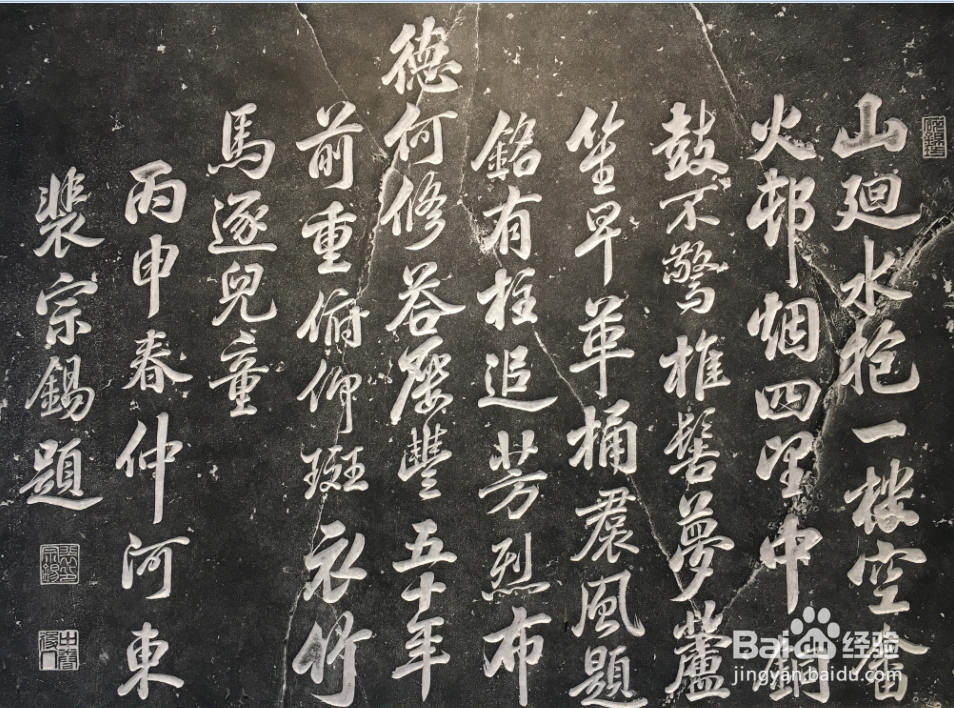 山廻水抱一樓空畬
火邨烟四望中銅
鼓不驚椎髻夢蘆
笙早革桶裠風題
銘有柱追芳烈布
德何修荅屢豐五十年
前重俯仰斑衣竹
馬逐兒童
丙申春仲河東
裴宗錫題
Baidu 经验
jingyan.baidu.com